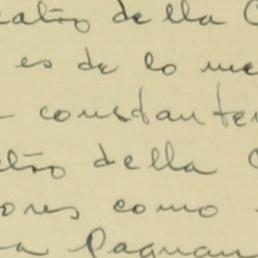 eatro della C
es de lo me
constante
atro della C
ores como
a Pagnan